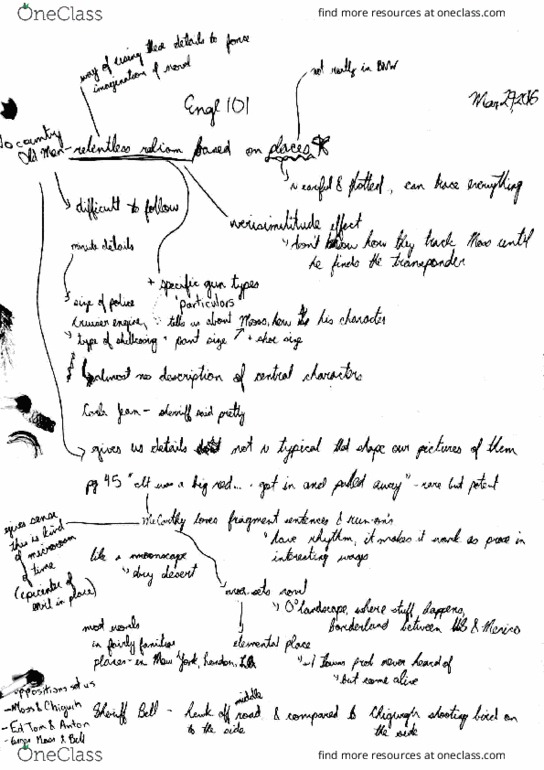 OneClass
find more resources at oneclass.com
way of using these details to force
imagination of novel
not really in BNW
Engl 101
Mar 29, 2016
No country
Old Men - relentless realism based on places
v careful & plotted, can trace everything
difficult to follow
verisimilitude effect
don't know how they track Moss until
he finds the transponder
minute details
+ specific gun types
particulars
size of police
cruiser engine
tells us about Moss, how his character
type of shellcasing + pant size + shoe size
almost no description of central characters
Carla Jean - sheriff said pretty
gives us details not v typical that shape our pictures of them
pg 45 "It was a big red... got in and pulled away" - rare but potent
McCarthy loves fragment sentences & run-on's
have rhythm, it makes it work as prose in
interesting ways
gives sense
this is kind
of microcosm
of time
(epicenter of
evil in place)
like a moonscape
dry desert
novel
landscape, where stuff happens,
borderland between US & Mexico
most novels
in fairly familiar
places - in New York, London, LA
elemental place
towns prob never heard of
but come alive
oppositions set up
- Moss & Chigurh
- Ed Tom & Anton
Moss & Bell
Sheriff Bell - hawk off middle road & compared to Chigurgh shooting bird on
to the side
the side
OneClass
find more resources at oneclass.com